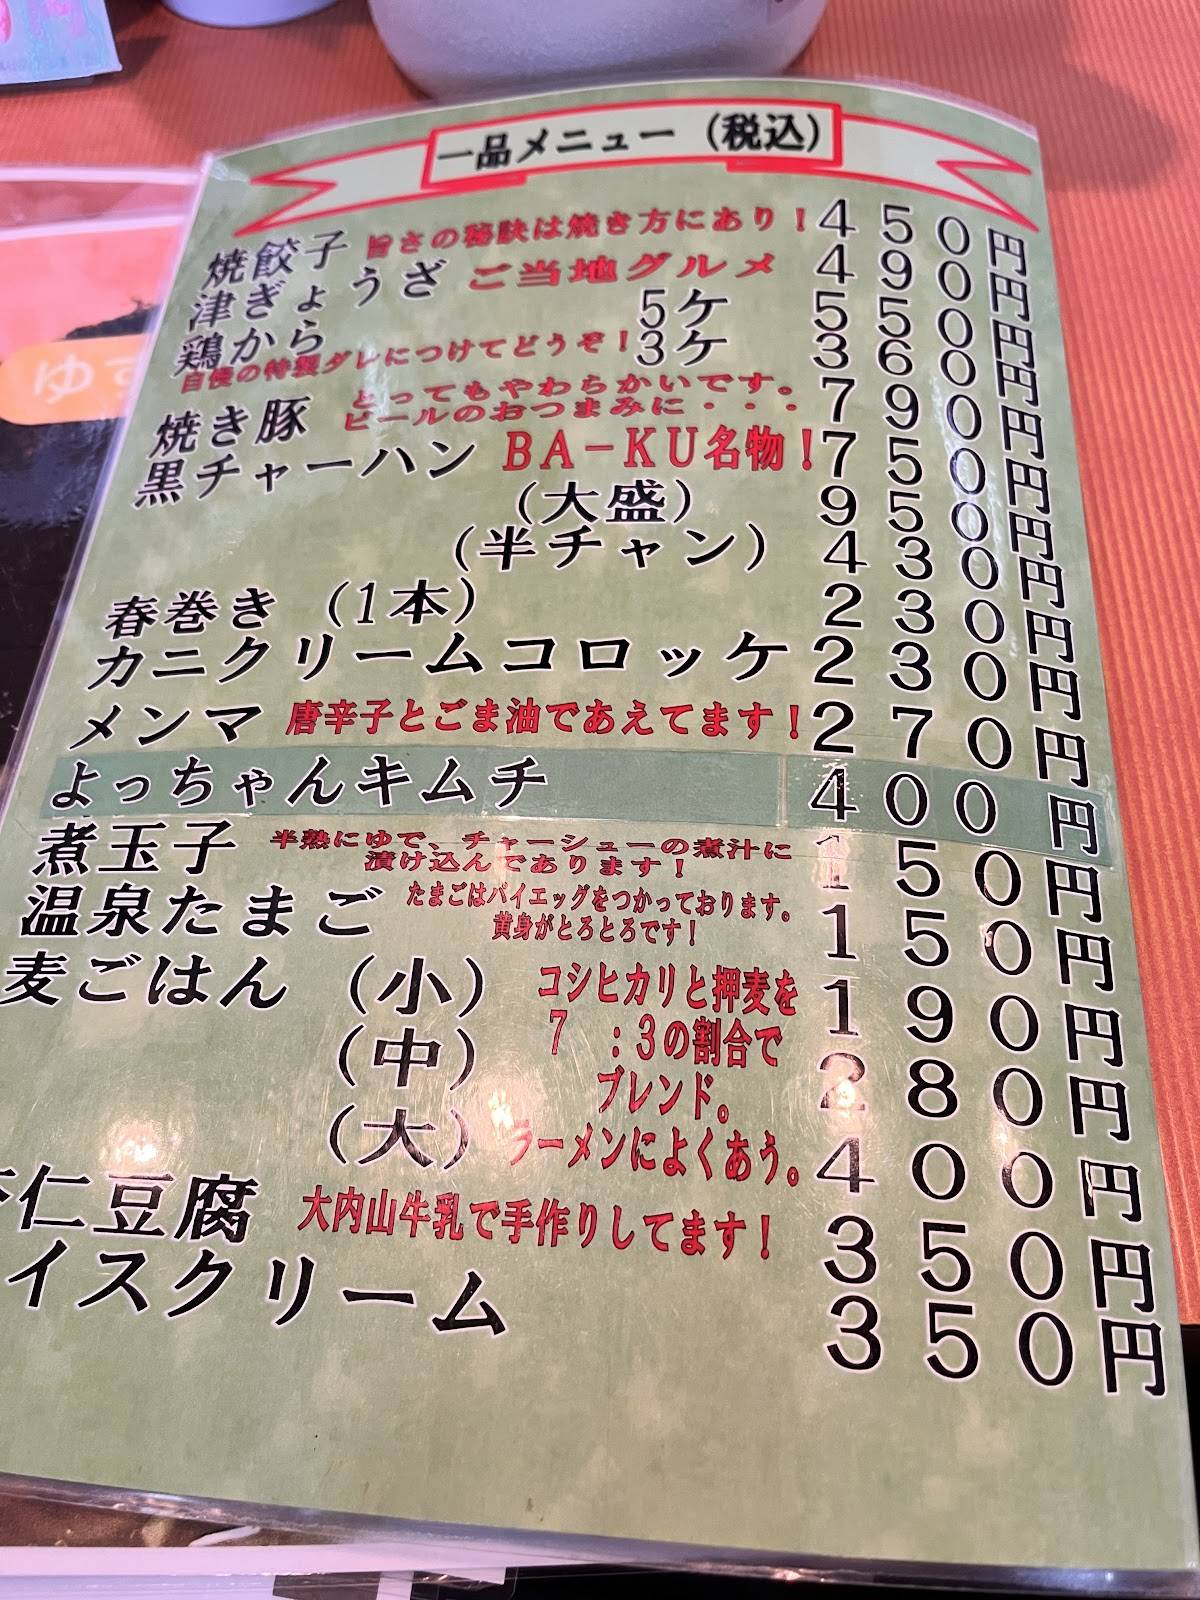 一品メニュー（税込）
焼餃子 旨さの秘訣は焼き方にあり！ 450円
津ぎょうざ ご当地グルメ 490円
鶏から 5ケ 550円
自慢の特製ダレにつけてどうぞ！ 3ケ 360円
とってもやわらかいです。
焼き豚 ビールのおつまみに・・・ 790円
黒チャーハン BA－KU名物！ 750円
（大盛） 950円
（半チャン） 430円
春巻き （1本） 230円
カニクリームコロッケ 230円
メンマ 唐辛子とごま油であえてます！ 270円
よっちゃんキムチ 400円
煮玉子 半熟にゆで、チャーシューの煮汁に 150円
漬け込んであります！
温泉たまご たまごはパイエッグをつかっております。 150円
黄身がとろとろです！
麦ごはん （小） コシヒカリと押麦を 190円
7：3の割合で
（中） ブレンド。 280円
（大） ラーメンによくあう。 400円
仁豆腐 大内山牛乳で手作りしてます！ 350円
イスクリーム 350円
ゆず